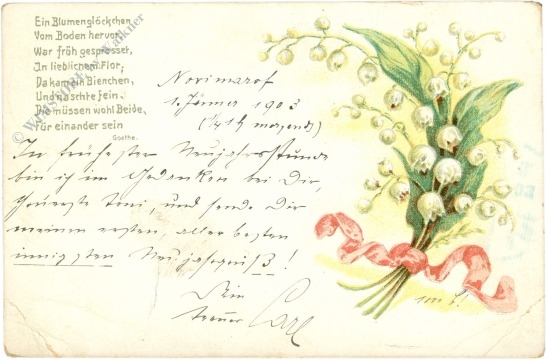 Ein Blumenglöckchen
Vom Boden hervor
War früh gesprosset,
In lieblichem Flor;
Da kam ein Bienchen,
Und naschte fein.
Die müssen wohl Beide,
Für einander sein
Goethe.
Novimarof
1. Jänner 1903
(1/4 1 h morgens)
In frühester Neujahrsstunde
bin ich im Gedanken bei Dir,
theuerste Toni, und sende Dir
meinen ersten, aller besten
innigsten Neujahrsgruß!
Dein
treuer Carl